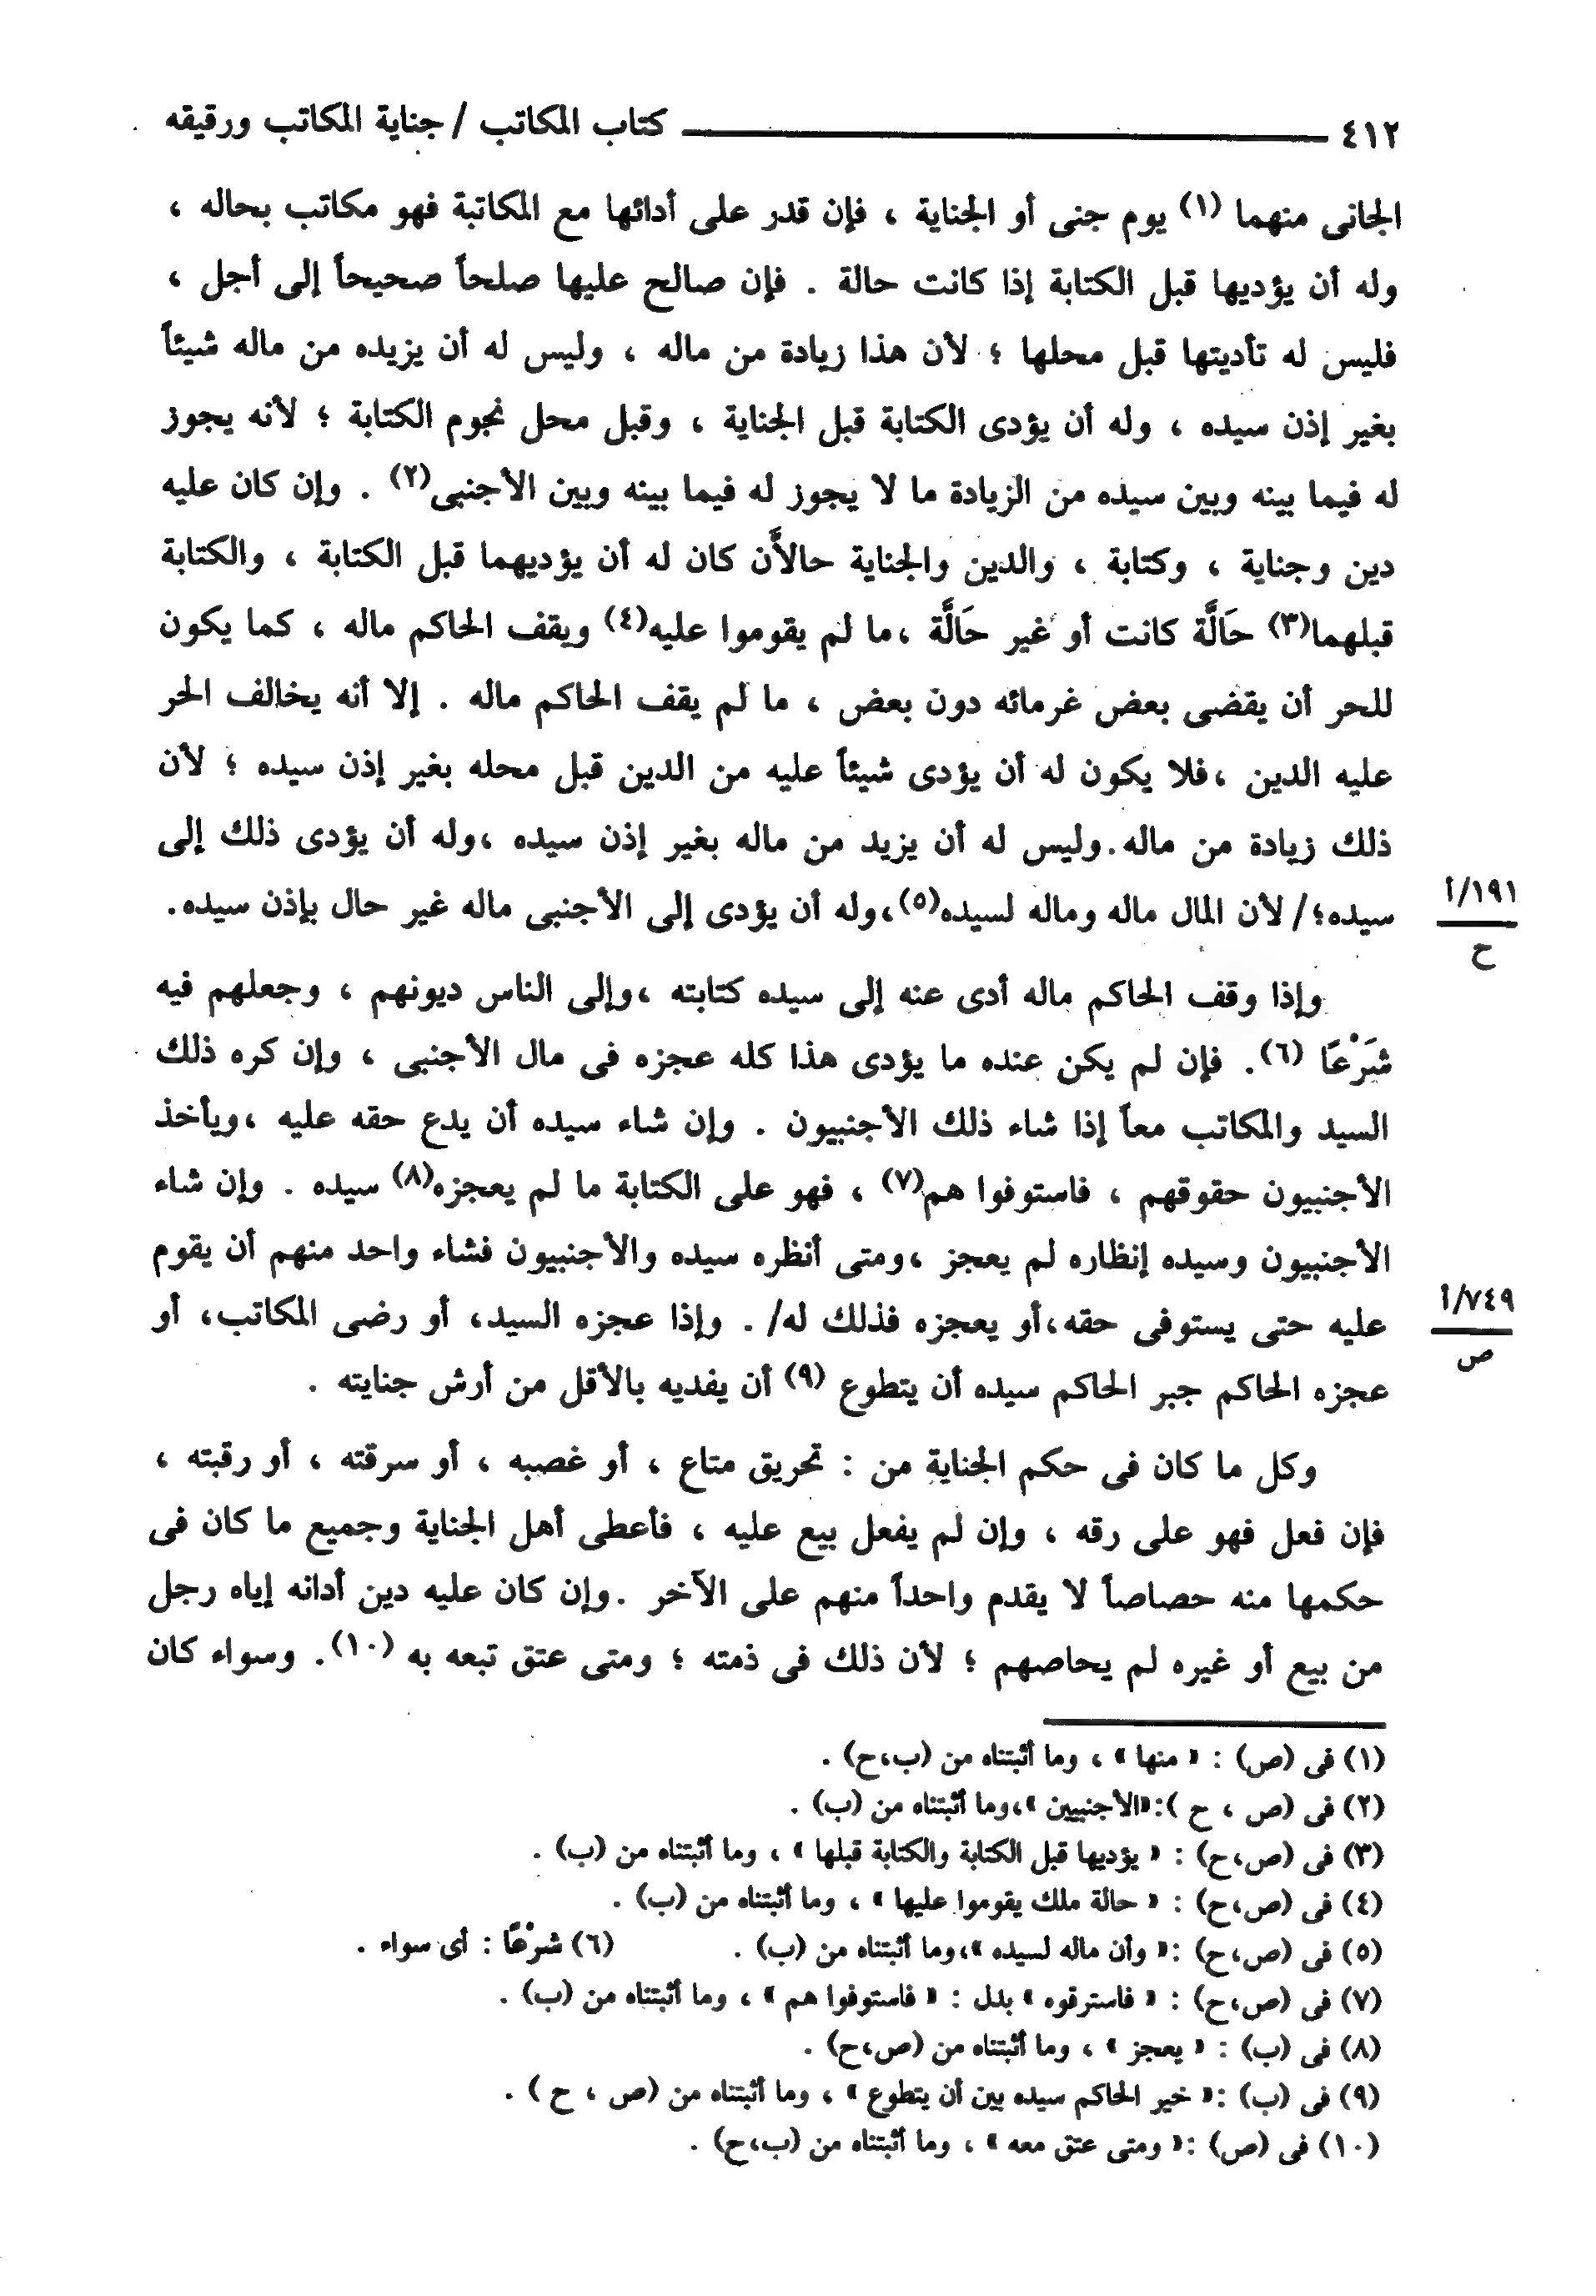 ٤١٢ كتاب المكاتب / جناية المكاتب ورقيقه
الجانى منهما (١) يوم جنى أو الجناية ، فإن قدر على أدائها مع المكاتبة فهو مكاتب بحاله ،
وله أن يؤديها قبل الكتابة إذا كانت حالة . فإن صالح عليها صلحاً صحيحاً إلى أجل ،
فليس له تأديتها قبل محلها ؛ لأن هذا زيادة من ماله ، وليس له أن يزيده من ماله شيئاً
بغير إذن سيده ، وله أن يؤدى الكتابة قبل الجناية ، وقبل محل نجوم الكتابة ؛ لأنه يجوز
له فيما بينه وبين سيده من الزيادة ما لا يجوز له فيما بينه وبين الأجنبى(٢) . وإن كان عليه
دين وجناية ، وكتابة ، والدين والجناية حالاَّن كان له أن يؤديهما قبل الكتابة ، والكتابة
قبلهما(٣) حَالَّة كانت أو غير حَالَّة ،ما لم يقوموا عليه(٤) ويقف الحاكم ماله ، كما يكون
للحر أن يقضى بعض غرمائه دون بعض ، ما لم يقف الحاكم ماله . إلا أنه يخالف الحر
عليه الدين ،فلا يكون له أن يؤدى شيئاً عليه من الدين قبل محله بغير إذن سيده ؛ لأن
ذلك زيادة من ماله.وليس له أن يزيد من ماله بغير إذن سيده ،وله أن يؤدى ذلك إلى
سيده؛/ لأن المال ماله وماله لسيده(٥)،وله أن يؤدى إلى الأجنبى ماله غير حال بإذن سيده.
١٩١/أ
ح
وإذا وقف الحاكم ماله أدى عنه إلى سيده كتابته ،وإلى الناس ديونهم ، وجعلهم فيه
شَرَْعًا (٦). فإن لم يكن عنده ما يؤدى هذا كله عجزه فى مال الأجنبى ، وإن كره ذلك
السيد والمكاتب معاً إذا شاء ذلك الأجنبيون . وإن شاء سيده أن يدع حقه عليه ،ويأخذ
الأجنبيون حقوقهم ، فاستوفوا هم(٧) ، فهو على الكتابة ما لم يعجزه(٨) سيده . وإن شاء
الأجنبيون وسيده إنظاره لم يعجز ،ومتى أنظره سيده والأجنبيون فشاء واحد منهم أن يقوم
عليه حتى يستوفى حقه،أو يعجزه فذلك له/ . وإذا عجزه السيد، أو رضى المكاتب، أو
٧٤٩/أ
ص
عجزه الحاكم جبر الحاكم سيده أن يتطوع (٩) أن يفديه بالأقل من أرش جنايته .
وكل ما كان فى حكم الجناية من : تحريق متاع ، أو غصبه ، أو سرقته ، أو رقبته ،
فإن فعل فهو على رقه ، وإن لم يفعل بيع عليه ، فأعطى أهل الجناية وجميع ما كان فى
حكمها منه حصاصاً لا يقدم واحداً منهم على الآخر .وإن كان عليه دين أدانه إياه رجل
من بيع أو غيره لم يحاصهم ؛ لأن ذلك فى ذمته ؛ ومتى عتق تبعه به (١٠). وسواء كان
(١) فى (ص) : « منها » ، وما أثبتناه من (ب،ح) .
(٢) فى (ص ، ح ):«الأجنبيين »،وما أثبتناه من (ب) .
(٣) فى (ص،ح) : « يؤديها قبل الكتابة والكتابة قبلها » ، وما أثبتناه من (ب) .
(٤) فى (ص،ح) : « حالة ملك يقوموا عليها » ، وما أثبتناه من (ب) .
(٥) فى (ص،ح) :« وأن ماله لسيده »،وما أثبتناه من (ب) . (٦) شَرْعًا : أى سواء .
(٧) فى (ص،ح) : « فاسترقوه » بدل : « فاستوفوا هم » ، وما أثبتناه من (ب) .
(٨) فى (ب) : « يعجز » ، وما أثبتناه من (ص،ح) .
(٩) فى (ب) :« خير الحاكم سيده بين أن يتطوع » ، وما أثبتناه من (ص ، ح ) .
(١٠) فى (ص) :« ومتى عتق معه » ، وما أثبتناه من (ب،ح) .